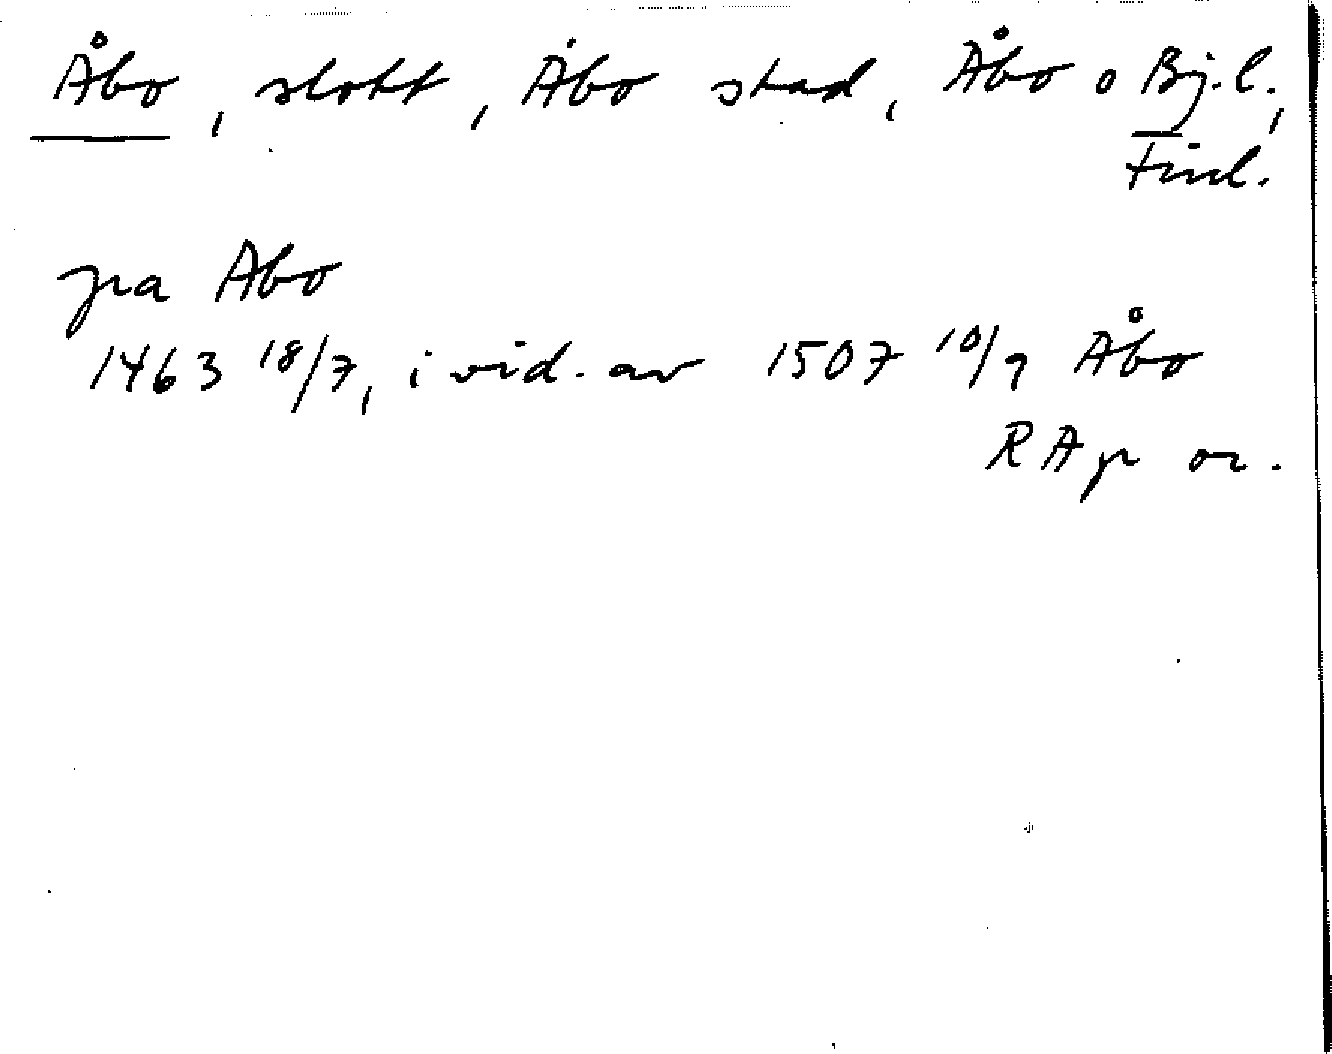 Åbo, slott, Åbo stad, Åbo o Bj. l.,
Finl.
pa Abo
1463 18/7, i vid. av 1507 10/9 Åbo
RAp or.